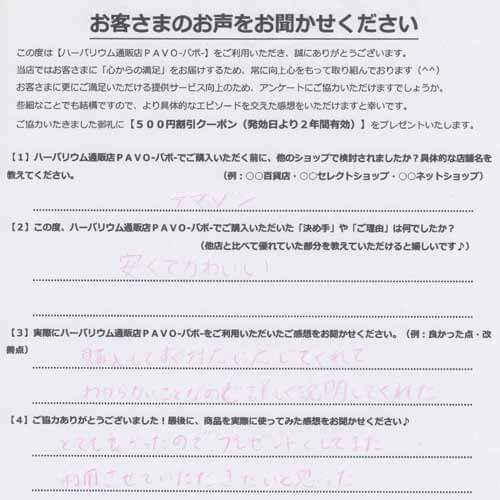 お客さまのお声をお聞かせください
この度は【ハーバリウム通販店ＰＡＶＯ-パボ-】をご利用いただき、誠にありがとうございます。
当店ではお客さまに「心からの満足」をお届けするため、常に向上心をもって取り組んでおります（^^）
お客さまに更にご満足いただける提供サービス向上のため、アンケートにご協力いただけますでしょうか。
些細なことでも結構ですので、より具体的なエピソードを交えた感想をいただけますと幸いです。
ご協力いたきました御礼に【５００円割引クーポン（発効日より２年間有効）】をプレゼントいたします。
【１】ハーバリウム通販店ＰＡＶＯ-パボ-でご購入いただく前に、他のショップで検討されましたか？具体的な店舗名を
教えてください。（例：○○百貨店・○○セレクトショップ・○○ネットショップ）
アマゾン
【２】この度、ハーバリウム通販店ＰＡＶＯ-パボ-でご購入いただいた「決め手」や「ご理由」は何でしたか？
（他店と比べて優れていた部分を教えていただけると嬉しいです♪）
安くてかわいい
【３】実際にハーバリウム通販店ＰＡＶＯ-パボ-をご利用いただいたご感想をお聞かせください。（例：良かった点・改
善点）
購入して してくれて
わからないことなので詳しく説明してくれた
【４】ご協力ありがとうございました！最後に、商品を実際に使ってみた感想をお聞かせください♪
とても良かったので、プレゼントとしてまた
利用させていただきたいと思った